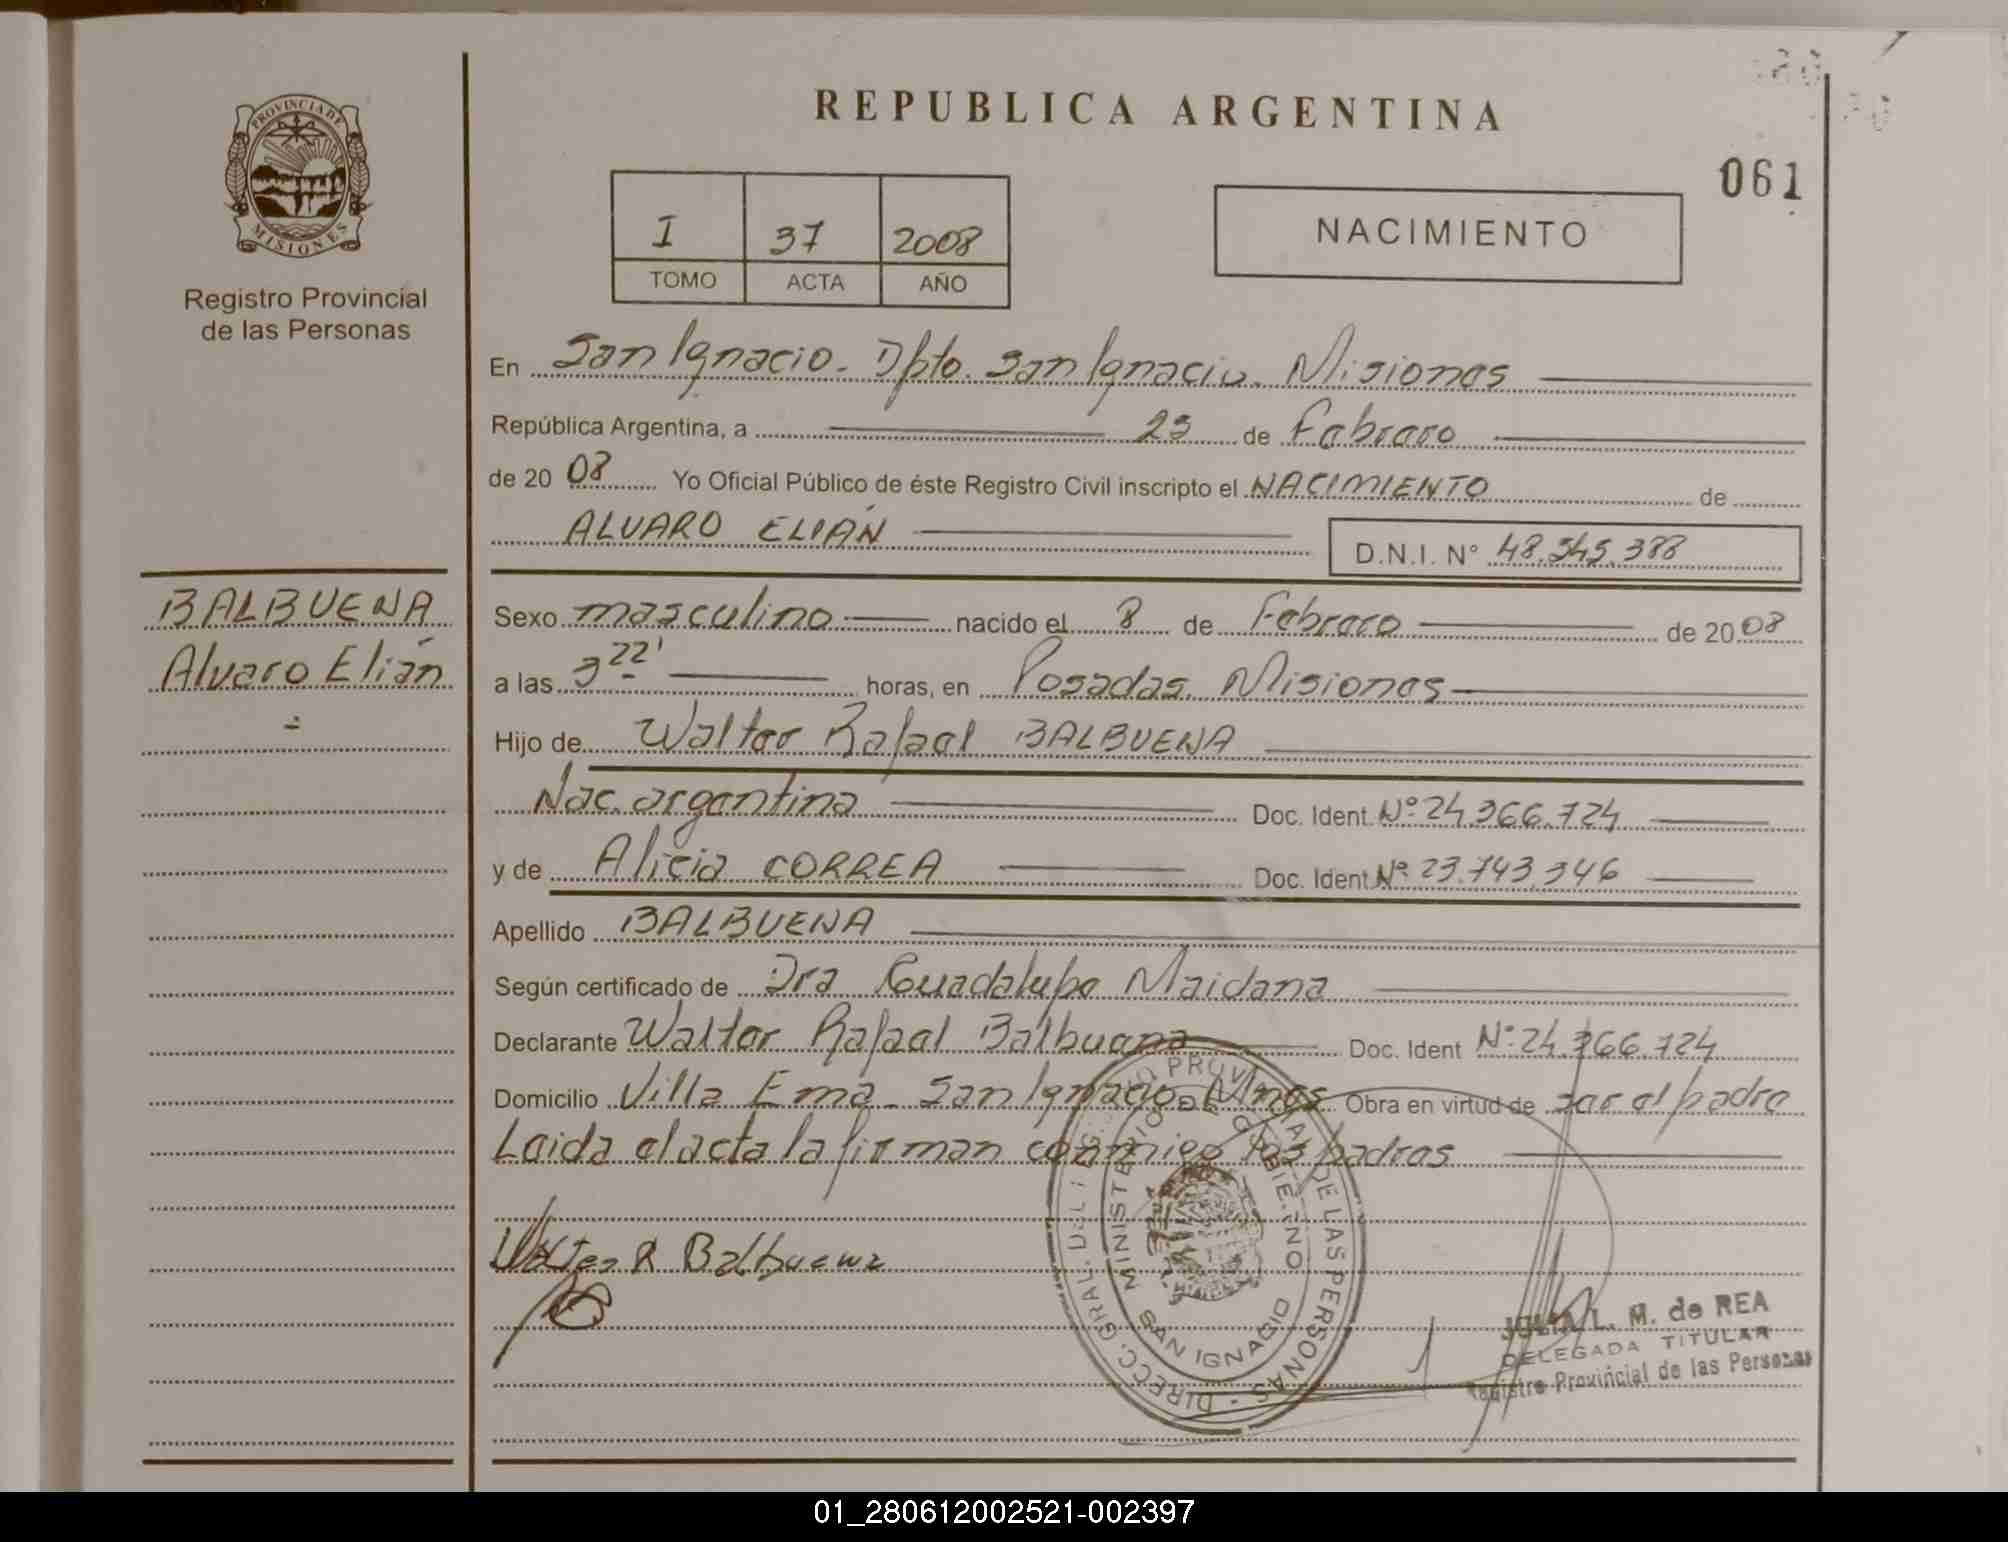 PROVINCIA DE
MISIONES
Registro Provincial
de las Personas
BALBUENA
Alvaro Elián
REPUBLICA ARGENTINA
061
I 37 2008
TOMO ACTA AÑO
NACIMIENTO
En San Ignacio. Dpto. San Ignacio. Misiones
República Argentina, a 25 de Febrero
de 20 08 Yo Oficial Público de éste Registro Civil inscripto el NACIMIENTO de
ALVARO ELIÁN D.N.I. N° 48.545.388
Sexo masculino nacido el 8 de Febrero de 20 08
a las 3 22' horas, en Posadas Misiones
Hijo de Walter Rafael BALBUENA
Nac. argentina Doc. Ident. Nº 24.366.724
y de Alicia CORREA Doc. Ident Nº 23.743.346
Apellido BALBUENA
Según certificado de Dra Guadalupe Maidana
Declarante Walter Rafael Balbuena Doc. Ident Nº 24.366.724
Domicilio Villa Ema. San Ignacio. Mnes Obra en virtud de ser el padre
Leida el acta la firman conmigo los padres
Walter R Balbuena
DIRECC. GRAL. DEL REG. PROVINCIAL DE LAS PERSONAS
MINISTERIO DE GOBIERNO
SAN IGNACIO
L. M. de REA
DELEGADA TITULAR
Registro Provincial de las Personas
01_280612002521-002397